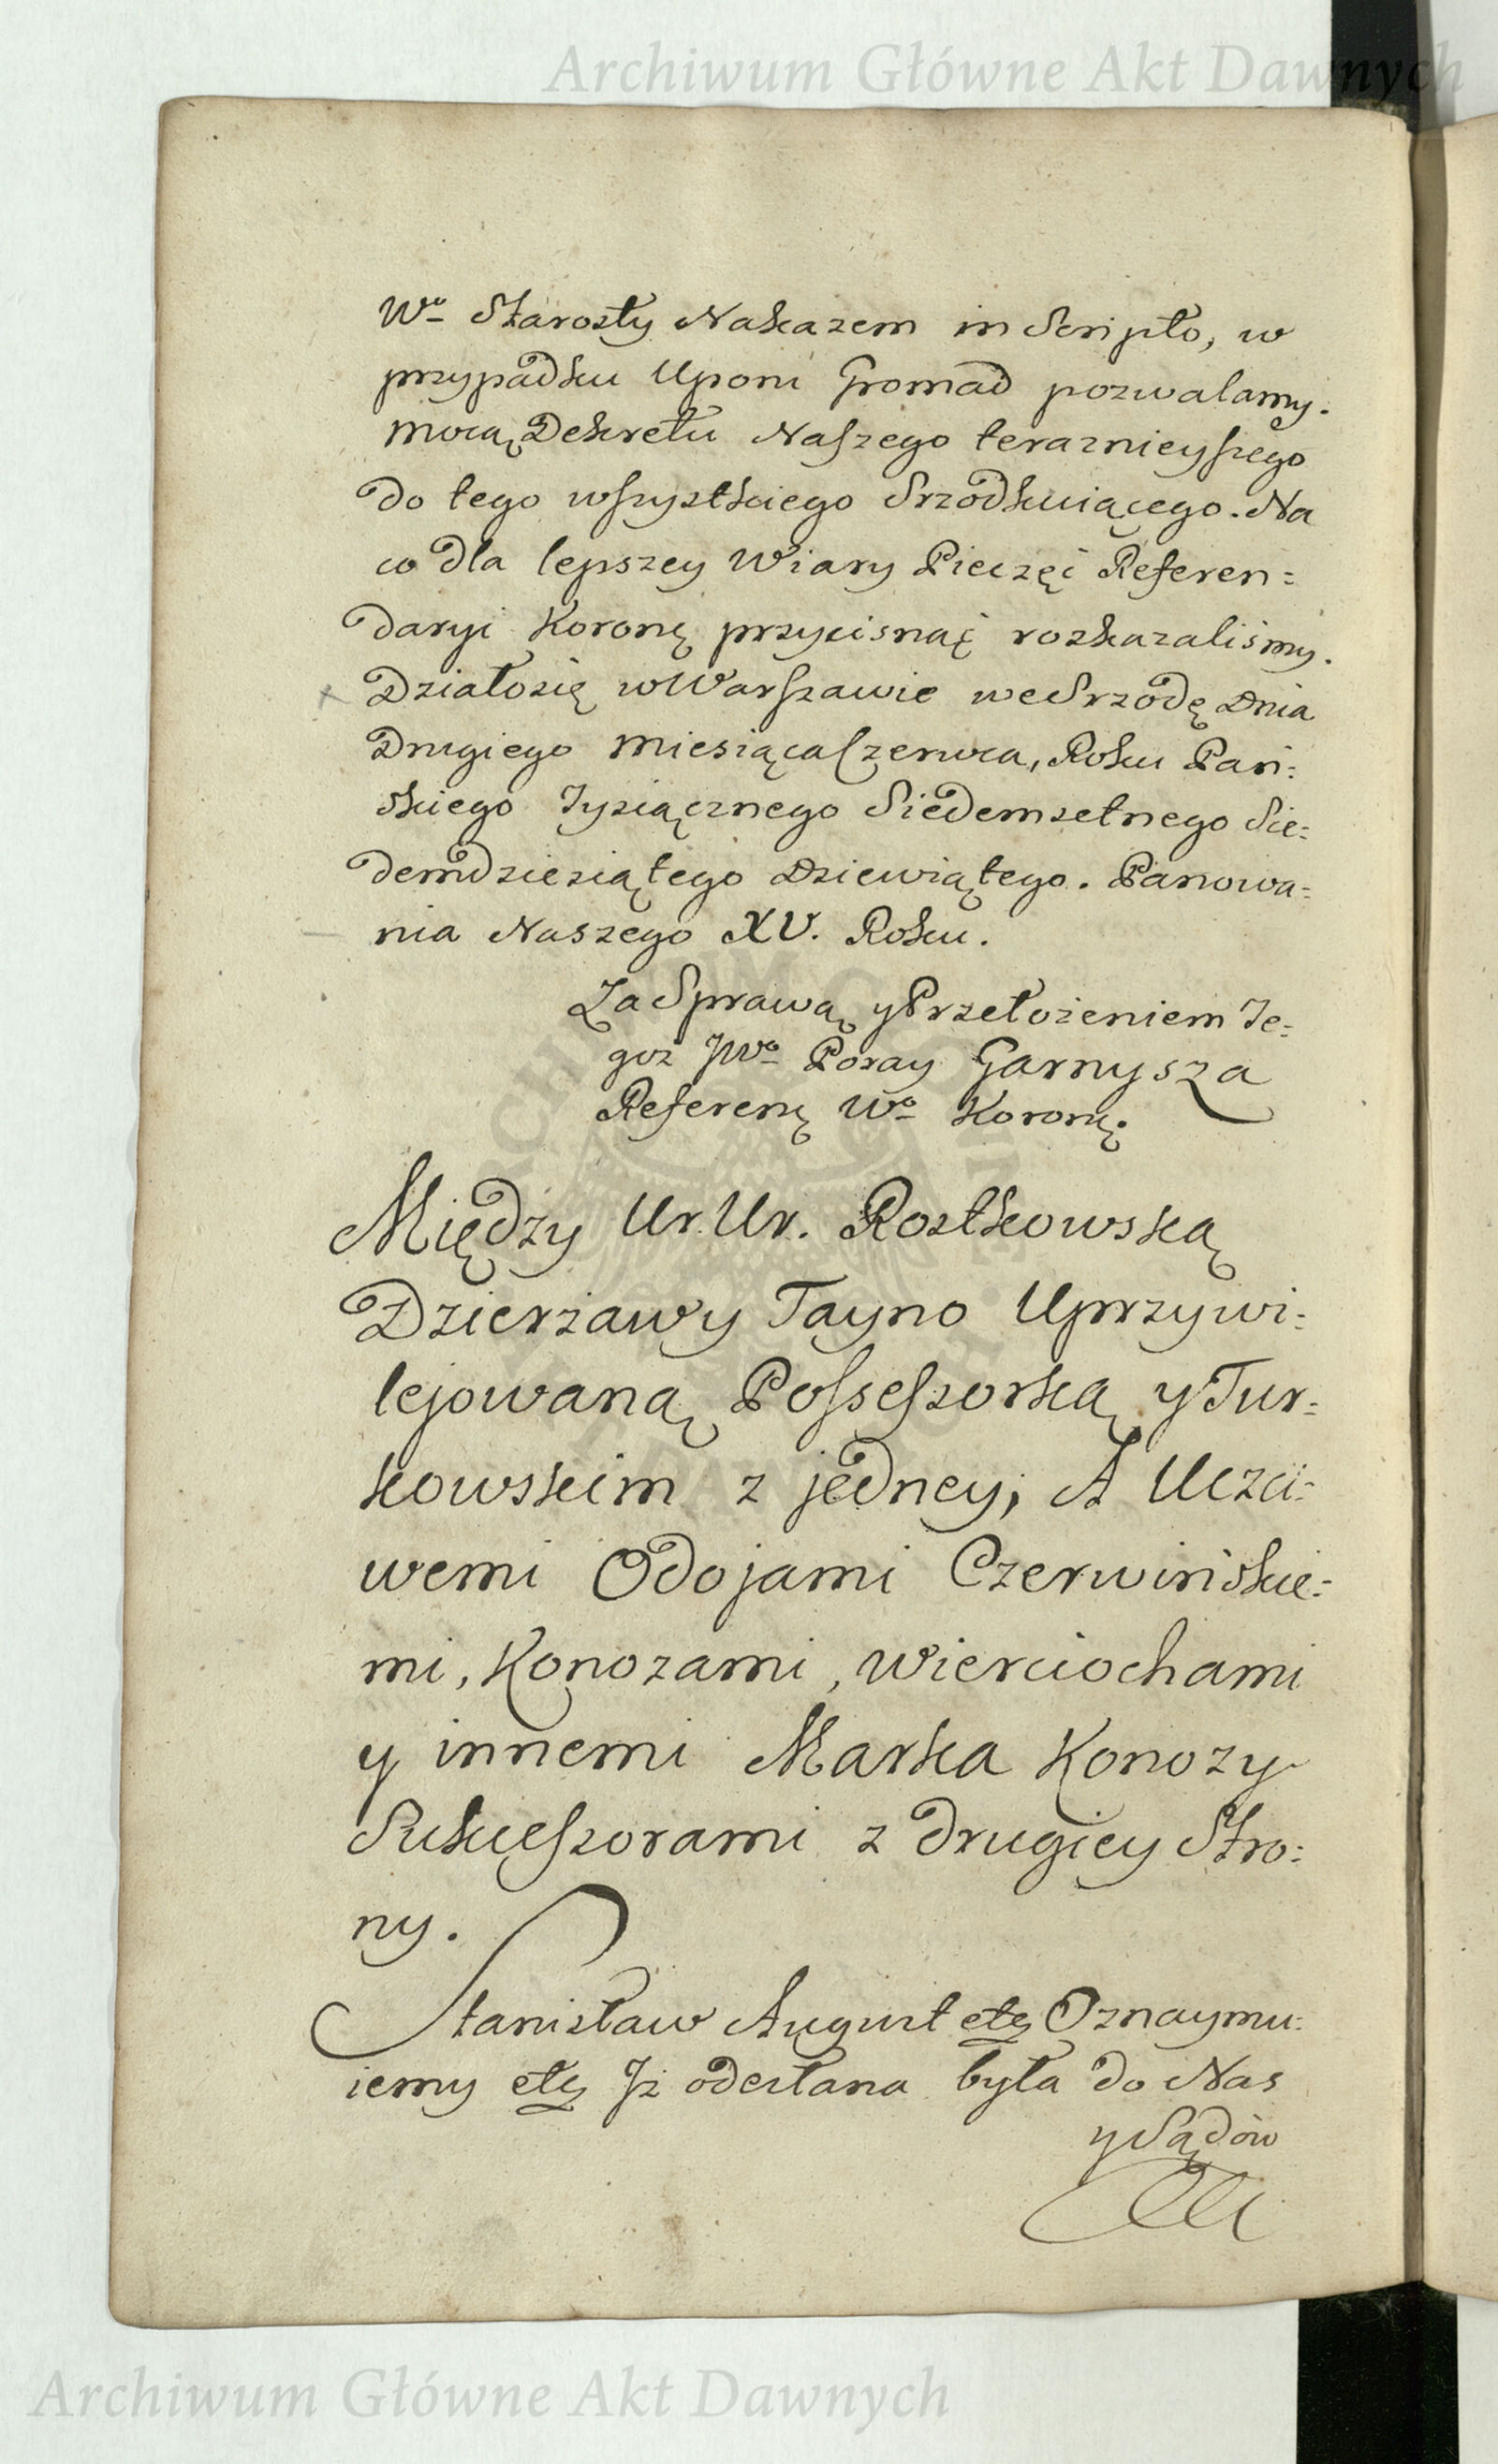 Archiwum Główne Akt Dawnych
Wo Starosty Nakazem in Scripto, w
przypadku Uporu Gromad pozwalamy.
mocą Dekretu Naszego teraznieyszego
do tego wszystkiego Srzodkuiącego. Na
co dla lepszey Wiary Pieczęć Referen=
daryi Koronę przycisnąć rozkazaliśmy.
Działosię w Warszawie we Srzodę Dnia
Drugiego Miesiąca Czerwca, Roku Pań=
skiego Tysiącznego Siedemsetnego Sie=
demdziesiątego Dziewiątego. Panowa=
nia Naszego XV. Roku.
Za Sprawą y Przełożeniem Te=
goż JWo Poray Garnysza
Referenę Wo Koronę.
Między Ur. Ur. Rostkowską
Dzierżawy Tayno Uprzywi=
lejowaną Possessorką y Tur=
kowskim z jedney, A Uczci=
wemi Odojami Czerwińskie=
mi, Konozami, Wierciochami
y innemi Marka Konozy
Sukcessorami z drugiey Stro=
ny.
Stanisław August etc Oznaymu=
iemy etc Iż odesłana była do Nas
y Sądów
Archiwum Główne Akt Dawnych